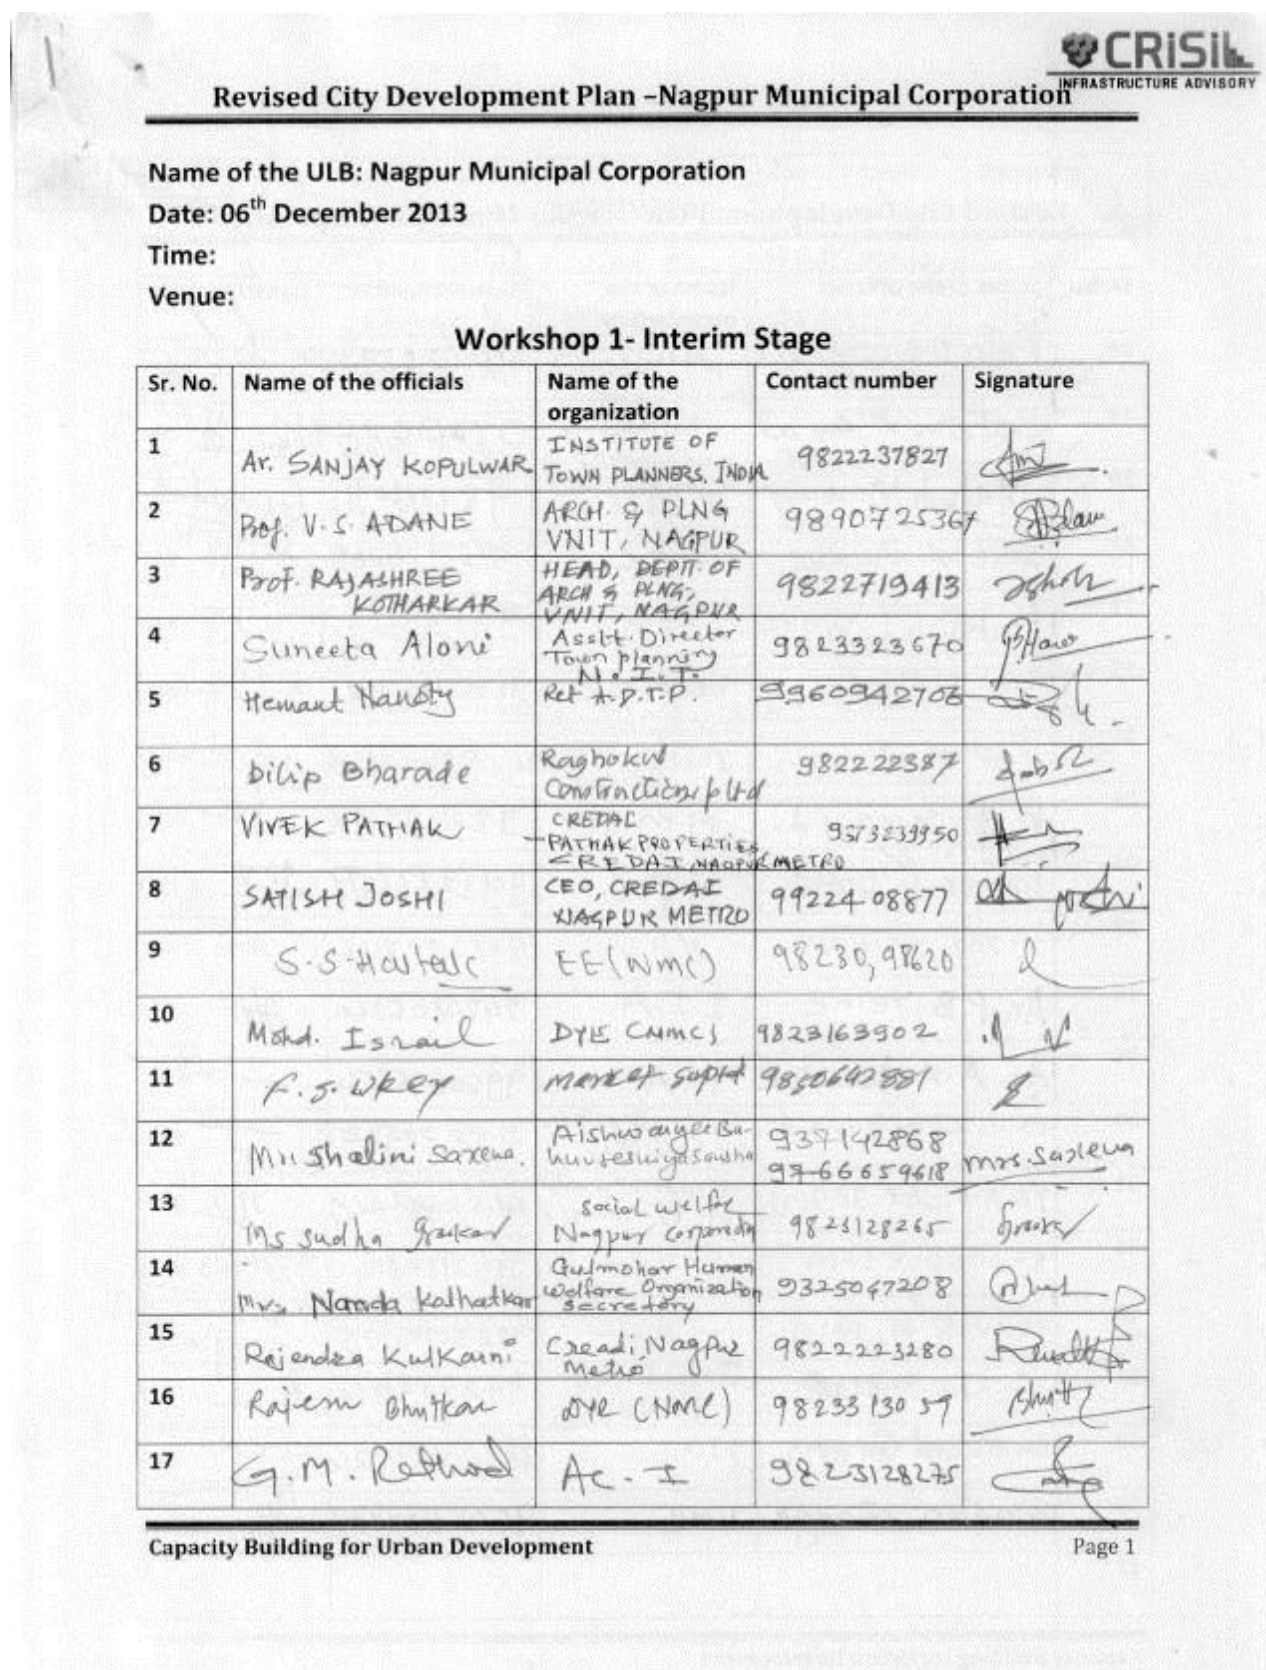 CRISIL
INFRASTRUCTURE ADVISORY
Revised City Development Plan –Nagpur Municipal Corporation
Name of the ULB: Nagpur Municipal Corporation
Date: 06th December 2013
Time:
Venue:
Workshop 1- Interim Stage
Sr. No. Name of the officials Name of the organization Contact number Signature
1 Ar. SANJAY KOPULWAR INSTITUTE OF TOWN PLANNERS, INDIA 9822237827
2 Prof. V. S. ADANE ARCH. & PLNG VNIT, NAGPUR 9890725367
3 Prof. RAJASHREE KOTHARKAR HEAD, DEPTT. OF ARCH & PLNG, VNIT, NAGPUR 9822719413
4 Suneeta Aloni Asstt. Director Town planning N. I. T. 9823323670
5 Hemant Ret A.D.T.P. 9960942706
6 Dilip Bharade Raghokul Constructions p ltd 982222387
7 VIVEK PATHAK CREDAI PATHAK PROPERTIES CREDAI, NAGPUR METRO
8 SATISH JOSHI CEO, CREDAI NAGPUR METRO 99224 08877 Joshi
9 S. S. EE (NMC) 98230, 98620
10 Mohd. Israil DYE (NMC) 9823163902
11 market supdt 9850642881
12 Mrs Shalini Saxena. 937142868 9766659618 Mrs. Saxena
13 Ms Sudha Social Welfre Nagpur 9823128265
14 Mrs. Nanda Kolhatkar Gulmohar Human Welfare Organization Secretory 9325047208
15 Rajendra Kulkarni Creadi, Nagpur Metro 9822223280
16 Rajesh Bhutkar DYE (NMC) 98233 130 59
17 G. M. Rathod Ac. I 9823128275
Capacity Building for Urban Development Page 1